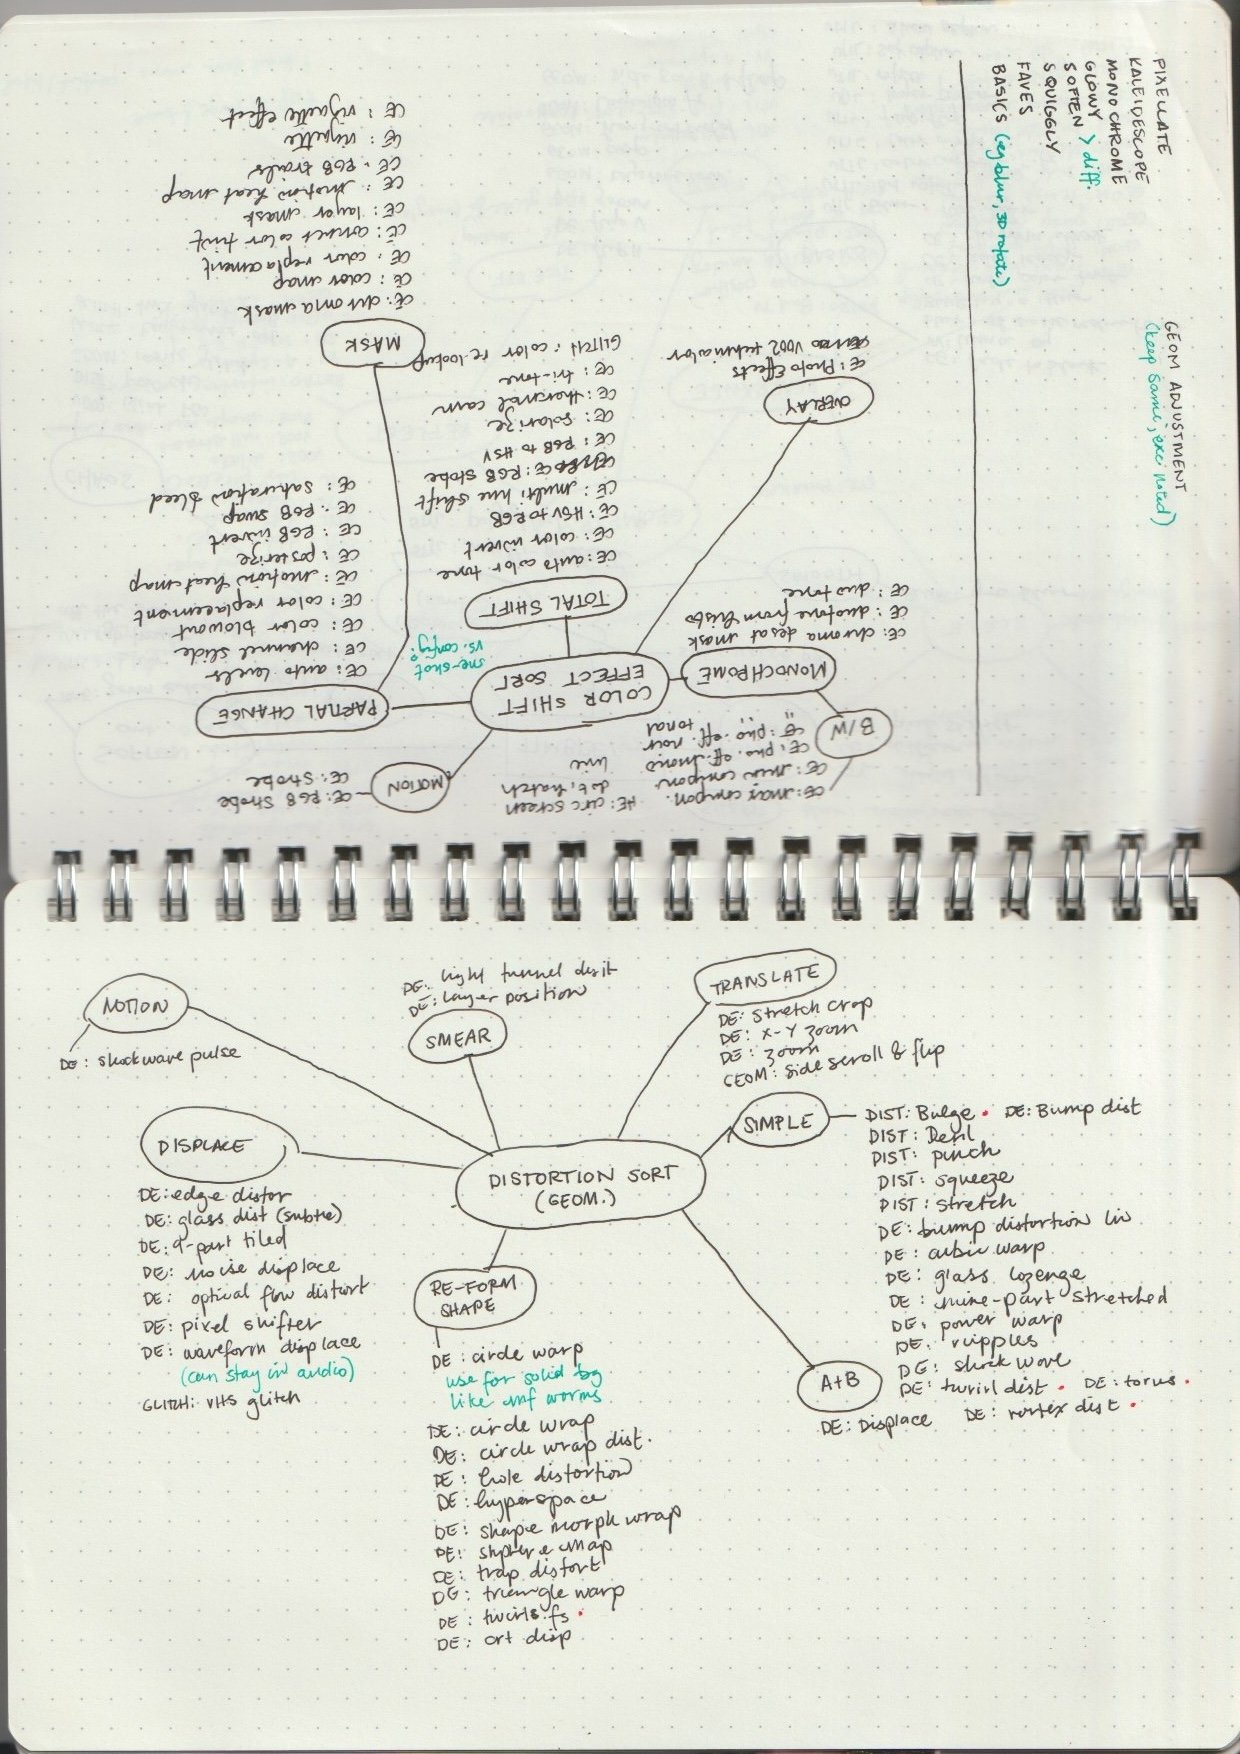 PIXELLATE
KALEIDESCOPE
MONOCHROME
GLOWY
SOFTEN > diff.
SQUIGGLY
FAVES
BASICS (eg blur, 3D rotate)
GEOM ADJUSTMENT
(keep same, exc. noted)
COLOR SHIFT
EFFECT SORT
one-shot
vs. config?
MOTION
CE: RGB Strobe
CE: Strobe
PARTIAL CHANGE
CE: auto levels
CE: channel slide
CE: color blowout
CE: color replacement
CE: motion heatmap
CE: posterize
CE: RGB invert
CE: RGB swap
CE: saturation bleed
MASK
CE: chroma mask
CE: color map
CE: color replacement
CE: correct color tint
CE: layer mask
CE: motion heat map
CE: RGB trails
CE: vignette
CE: vignette effect
TOTAL SHIFT
CE: auto color tone
CE: color invert
CE: HSV to RGB
CE: multi hue shift
CE: RGB strobe
CE: RGB to HSV
CE: solarize
CE: thermal cam
CE: tri-tone
GLITCH: color re-lookup
OVERLAY
CE: Photo Effects
V002 technicolor
MONOCHROME
CE: chroma desat mask
CE: duotone from histo
CE: duo tone
B/W
CE: max compon.
CE: min compon.
CE: pho. eff. mono
CE: pho. eff. noir
" " tonal
HE: circ screen
dot, hatch
line
MOTION
DE: shockwave pulse
SMEAR
DE: light tunnel dist
DE: layer position
TRANSLATE
DE: stretch crop
DE: x-y zoom
DE: zoom
GEOM: side scroll & flip
DISTORTION SORT
(GEOM.)
SIMPLE
DIST: Bulge DE: Bump dist
DIST: Devil
DIST: pinch
DIST: squeeze
DIST: stretch
DE: bump distortion lin
DE: cubic warp
DE: glass lozenge
DE: nine-part stretched
DE: power warp
DE: ripples
DE: shock wave
DE: twirl dist DE: torus
DE: vortex dist
A+B
DE: Displace
DISPLACE
DE: edge distor
DE: glass dist (subtle)
DE: 9-part tiled
DE: noise displace
DE: optical flow distort
DE: pixel shifter
DE: waveform displace
(can stay in audio)
GLITCH: VHS glitch
RE-FORM
SHAPE
DE: circle warp
use for solid bg
like mf worms
DE: circle wrap
DE: circle wrap dist.
DE: hole distortion
DE: hyperspace
DE: shape morph wrap
DE: sphere map
DE: trap distort
DE: triangle warp
DE: twirls.fs
DE: crt disp